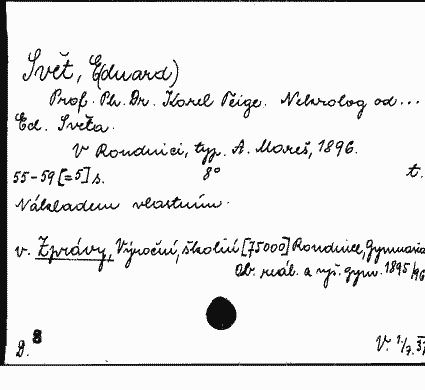 Svět, E(duard)
Prof. Ph. Dr. Karel Peige. Nekrolog od...
Ed. Světa.
V Roudnici, typ. A. Mareš, 1896.
55-59 [=5] s. 8° t.
Nákladem vlastním.
v. Zprávy, Výroční, školní [75000] Roudnice, Gymnasia
Ob. reál. a vyš. gymn. 1895/96
D. 8 V. 1/7.37